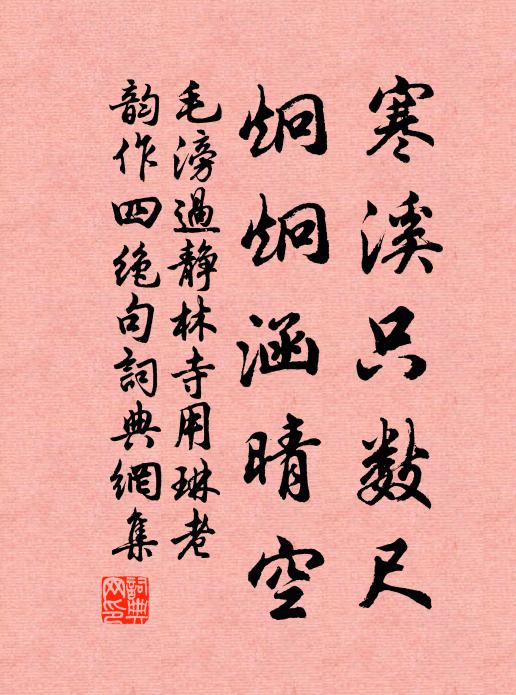 寒溪只数尺
炯炯涵晴空
毛滂過静林寺用琳老
韵作四绝句詞典網集
詞典网印